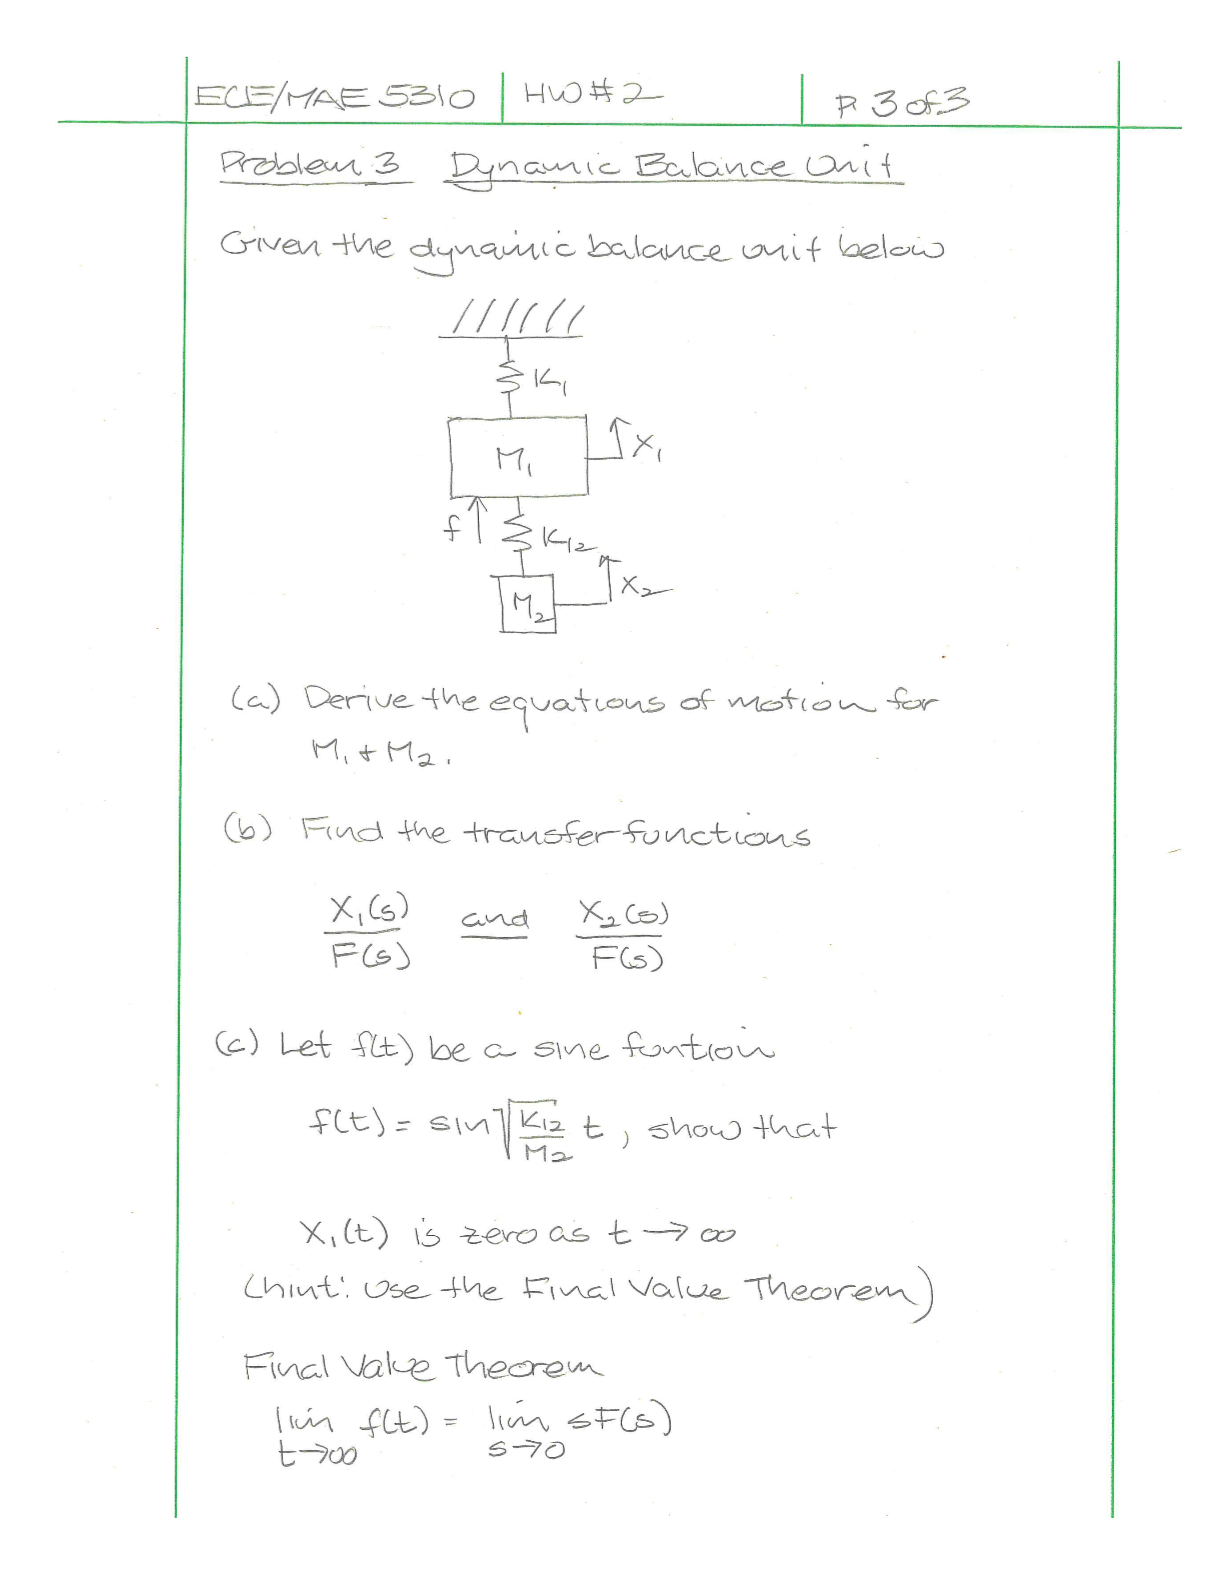 ECE/MAE 5310 | HW #2 | P 3 of 3
Problem 3 Dynamic Balance Unit
Given the dynamic balance unit below
K₁
M₁
X₁
f
K₁₂
X₂
M₂
(a) Derive the equations of motion for
M₁ + M₂.
(b) Find the transfer functions
X₁(s)/F(s) and X₂(s)/F(s)
(c) Let f(t) be a sine funtion
f(t) = sin √(K₁₂/M₂) t, show that
X₁(t) is zero as t → ∞
(hint: Use the Final Value Theorem)
Final Value Theorem
lim f(t) = lim sF(s)
t→∞ s→0